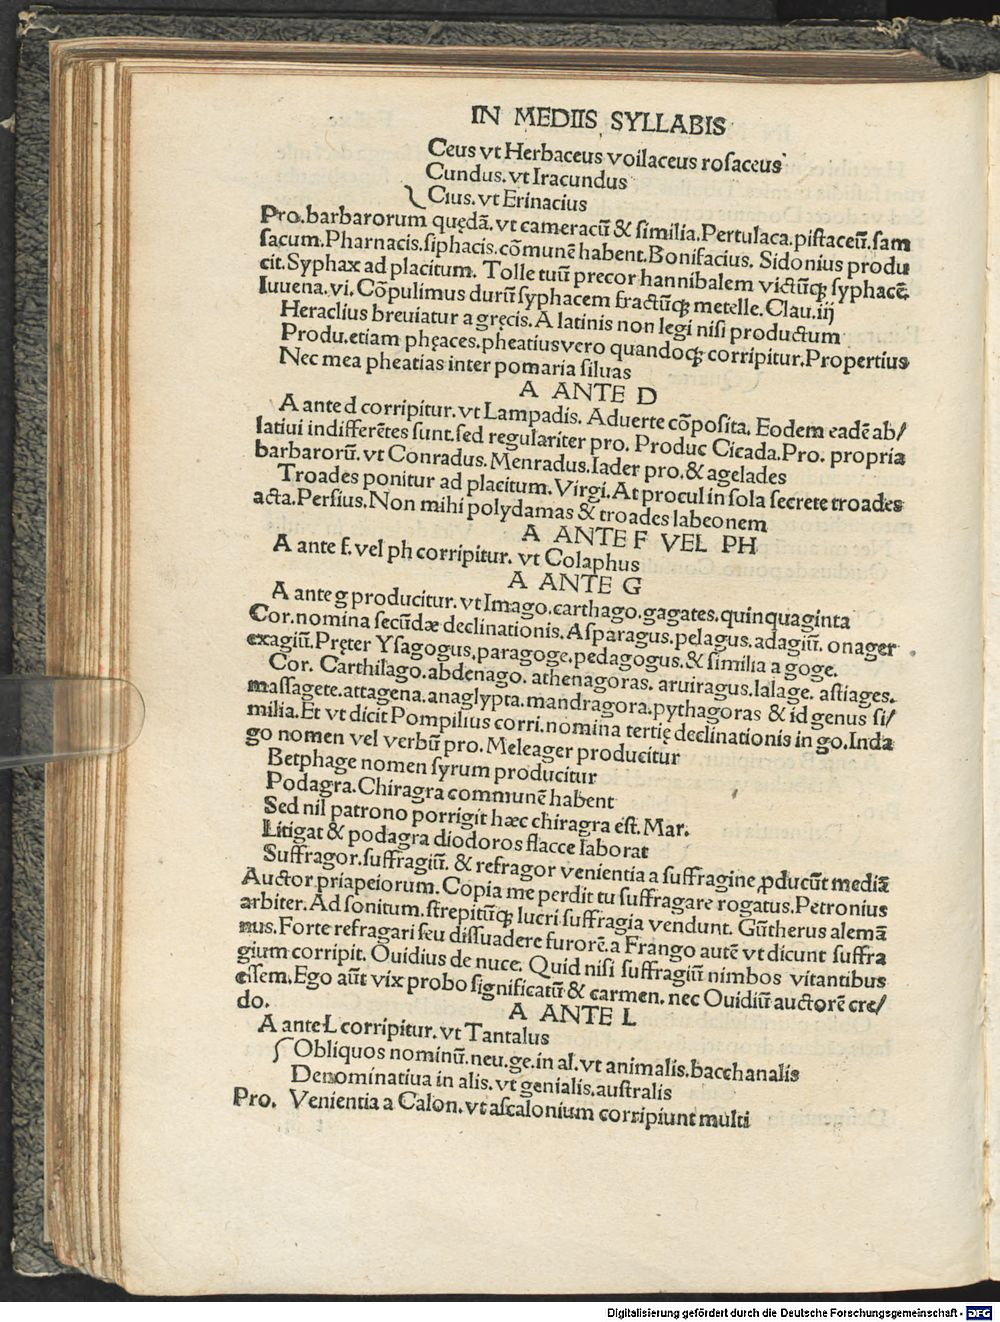 IN MEDIIS SYLLABIS
Ceus vt Herbaceus voilaceus rosaceus
Cundus. vt Iracundus
Cius. vt Erinacius
Pro. barbarorum quędã. vt cameracũ & similia. Pertulaca. pistaceũ. sam
sacum. Pharnacis. siphacis. cõmunẽ habent. Bonifacius. Sidonius produ
cit. Syphax ad placitum. Tolle tuũ precor hannibalem victũqꝫ syphacẽ.
Iuuena. vi. Cõpulimus durũ syphacem fractũqꝫ metelle. Clau. iij
Heraclius breuiatur a gręcis. A latinis non legi nisi productum
Produ. etiam phęaces. pheatius vero quandoqꝫ corripitur. Propertius
Nec mea pheatias inter pomaria siluas
A ANTE D
A ante d corripitur. vt Lampadis. Aduerte cõposita. Eodem eadẽ ab/
latiui indifferẽtes sunt. sed regulariter pro. Produc Cicada. Pro. propria
barbarorũ. vt Conradus. Menradus. Iader pro. & agelades
Troades ponitur ad placitum. Virgi. At procul in sola secrete troades
acta. Persius. Non mihi polydamas & troades labeonem
A ANTE F VEL PH
A ante f. vel ph corripitur. vt Colaphus
A ANTE G
A ante g producitur. vt Imago. carthago. gagates. quinquaginta
Cor. nomina secũdæ declinationis. Asparagus. pelagus. adagiũ. onager
exagiũ. Pręter Ysagogus. paragoge. pedagogus. & similia a goge.
Cor. Carthilago. abdenago. athenagoras. aruiragus. lalage. astiages.
massagete. attagena. anaglypta. mandragora. pythagoras & id genus si/
milia. Et vt dicit Pompilius corri. nomina tertię declinationis in go. Inda
go nomen vel verbũ pro. Meleager producitur
Betphage nomen syrum producitur
Podagra. Chiragra communẽ habent
Sed nil patrono porrigit hæc chiragra est. Mar.
Litigat & podagra diodoros flacce laborat
Suffragor. suffragiũ. & refragor venientia a suffragine ꝓducũt mediã
Auctor priapeiorum. Copia me perdit tu suffragare rogatus. Petronius
arbiter. Ad sonitum. strepitũqꝫ lucri suffragia vendunt. Gũtherus alemã
nus. Forte refragari seu dissuadere furorẽ. a Frango autẽ vt dicunt suffra
gium corripit. Ouidius de nuce. Quid nisi suffragiũ nimbos vitantibus
essem. Ego aũt vix probo significatũ & carmen. nec Ouidiũ auctorẽ cre/
do.
A ANTE L
A ante L corripitur. vt Tantalus
Obliquos nominũ. neu. ge. in al. vt animalis. bacchanalis
Denominatiua in alis. vt genialis. australis
Pro. Venientia a Calon. vt ascalonium corripiunt multi
Digitalisierung gefördert durch die Deutsche Forschungsgemeinschaft - DFG